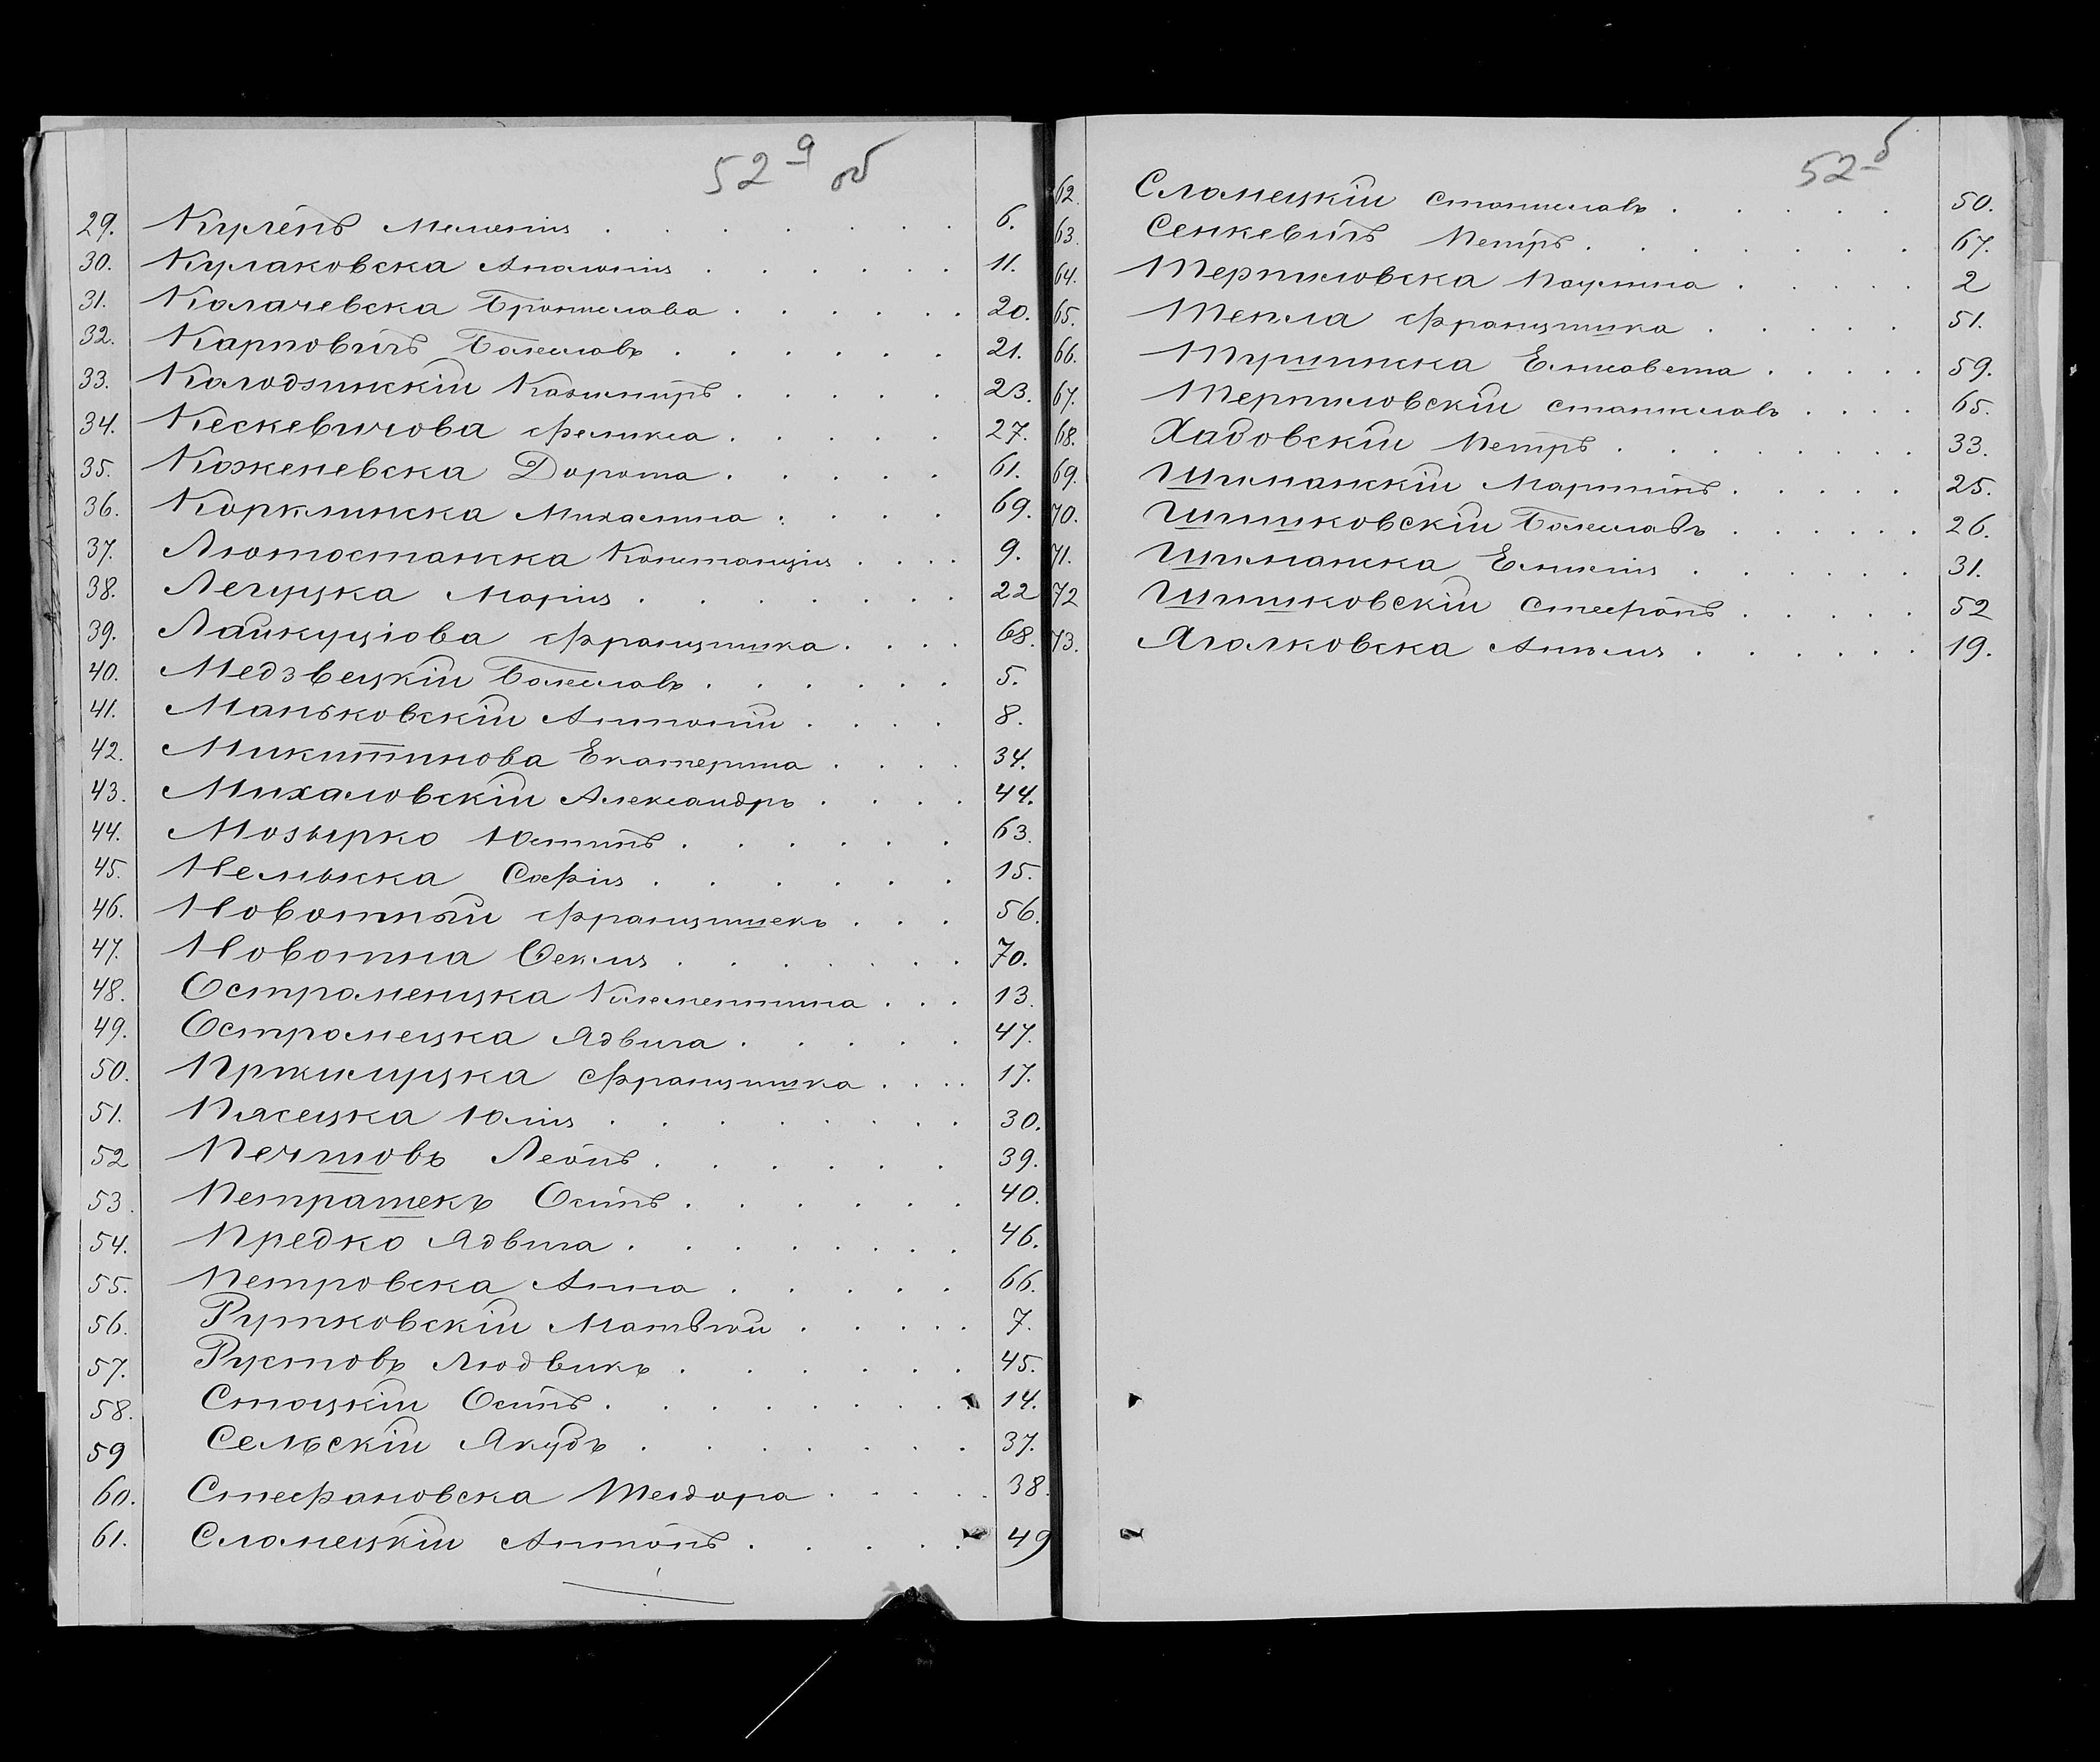 52 а об
29. Кулень Мелания 6.
30. Кулаковска Аполония 11.
31. Колачевска Бронислава 20.
32. Карповичъ Болеславъ 21.
33. Колодзинскій Казимиръ 23.
34. Кескевичова Феликса 27.
35. Коженевска Дорота 61.
36. Корклинска Михалина 69.
37. Лютостанска Констанція 9.
38. Легуцка Марія 22
39. Лайкуціова Францишка 68.
40. Медзвецкій Болеславъ 5.
41. Маньковскій Антоній 8.
42. Микитинова Екатерина 34.
43. Михаловскій Александръ 44.
44. Мозырко Юстинъ 63.
45. Немыкка Софія 15.
46. Новотный Францишекъ 56.
47. Новотна Фекля 70.
48. Остроменцка Клементина 13.
49. Остромецка Ядвига 47.
50. Францишка 17.
51. Пясецка Юлія 30.
52 Печтовъ Леонъ 39.
53. Петрашекъ Осипъ 40.
54. Предко Ядвига 46.
55. Петровска Анна 66.
56. Рутковскій Матвѣй 7.
57. Рустовъ Людвикъ 45.
58. Стоцкій Осипъ 14.
59 Сельскій Якубъ 37.
60. Стефановска Теодора 38.
61. Сломецкій Антонъ 49
52 б
62. Сломецкій Станиславъ 50.
63. Сенкевичъ Петръ 67.
64. Терпиловска Паулина 2
65. Тепла Францишка 51.
66. Тушинска Елисавета 59.
67. Терпиловскій Станиславъ 65.
68. Хадовскій Петръ 33.
69. Шиманскій Мартинъ 25.
70. Шишковскій Болеславъ 26.
71. Шиманска Емилія 31.
72 Шишковскій Стефанъ 52
73. Яголковска Анеля 19.